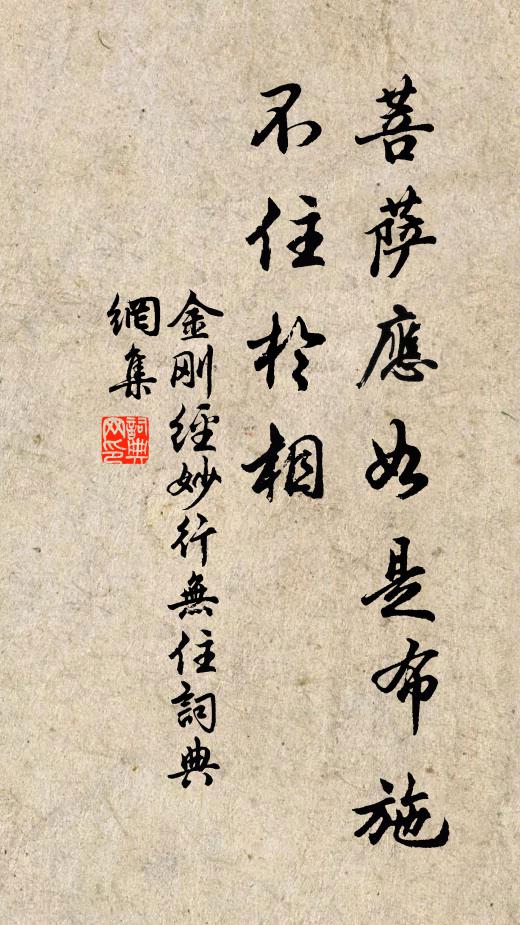 菩薩應如是布施
不住於相
金剛經妙行無住詞典
網集
詞典網印